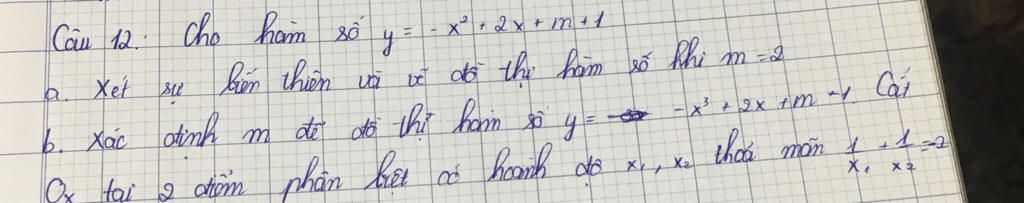 Câu 12. Cho hàm số y = -x² + 2x + m + 1
a. Xét sự biến thiên và vẽ đồ thị hàm số khi m = 2
b. Xác định m để đồ thị hàm số y = -x³ + 2x + m - 1 Cắt
Ox tại 2 điểm phân biệt có hoành độ x₁, x₂ thoả mãn 1/x₁ + 1/x₂ = -2